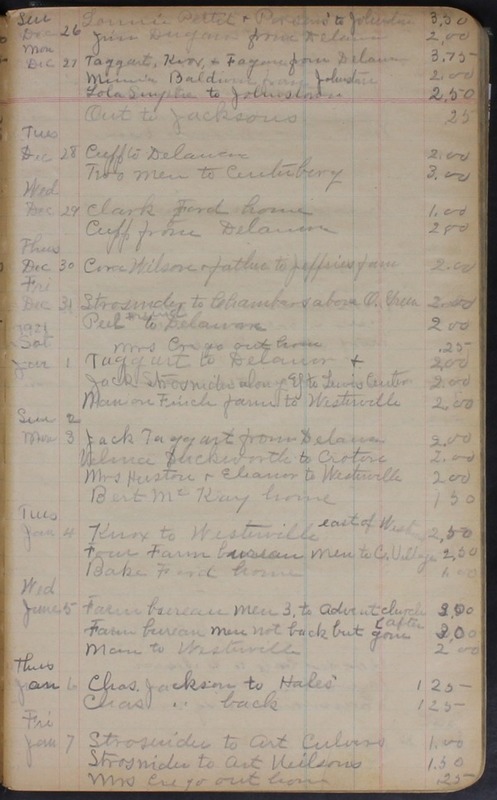 Sun
Dec 26 Lonnie Pettit & Persons to Johnstown 3,50
Jim Dugan from Delaware 2,00
Mon
Dec 27 Taggart, Knox, & Fagan from Delaware 3.75
Minnie Baldwin from Johnstown 2.00
Lola Simpkie to Johnstown 2,50
Out to Jacksons 25
Tues
Dec 28 Cuff to Delaware 2.00
Two men to Centerburg 3.00
Wed
Dec 29 Clark Ford home 1.00
Cuff from Delaware 200
Thurs
Dec 30 Cora Wilson & father to Jeffries farm 2.00
Fri
Dec 31 Strosnider to Chambers above O. 2.00
to Delaware 200
1921
Sat Mrs Crego out home .25
Jan 1 Taggart to Delawar + 2,00
Jack Strosnider along to Lewis Center 2.00
Man on Finch farm to Westerville 2,00
Sun 2
Mon 3 Jack Taggart from Delaware 2,00
Velma Duckworth to Croton 2.00
Mrs Huston & Eleanor to Westerville 200
Bert McKay home 150
Tues
Jan 4 Knox to Westerville east of West 2,50
Four Farm bureau men to C. Village 2,50
Bake Ford home 1.00
Wed
June 5 Farm bureau men 3, to Advent church 3,00
Farm bureau men not back but gone after 300
Man to Westerville 200
Thurs
Jan 6 Chas. Jackson to Hales' 1 25
Chas " back 125
Fri
Jan 7 Strosnider to Art Culvers 1.00
Strosnider to Art Neilsons 1.50
Mrs Crego out home .25